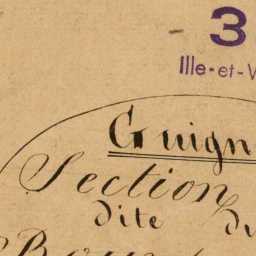 3
Ille-et-V
Guign
Section
dite du
Bou